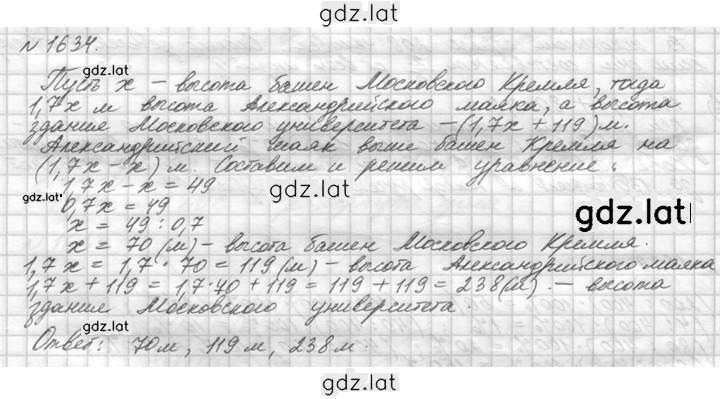 gdz.lat
№ 1634.
gdz.lat
Пусть x – высота башен Московского Кремля, тогда
1,7x м высота Александрийского маяка, а высота
здания Московского университета – (1,7x + 119) м.
Александрийский маяк выше башен Кремля на
(1,7x – x) м. Составим и решим уравнение:
1,7x – x = 49
gdz.lat
gdz.lat
0,7x = 49
gdz.lat
x = 49 : 0,7
x = 70 (м) – высота башен Московского Кремля.
1,7x = 1,7 · 70 = 119 (м) – высота Александрийского маяка
1,7x + 119 = 1,7·70 + 119 = 119 + 119 = 238 (м) – высота
здания Московского университета.
gdz.lat
Ответ: 70 м, 119 м, 238 м.
gdz.lat
gdz.lat